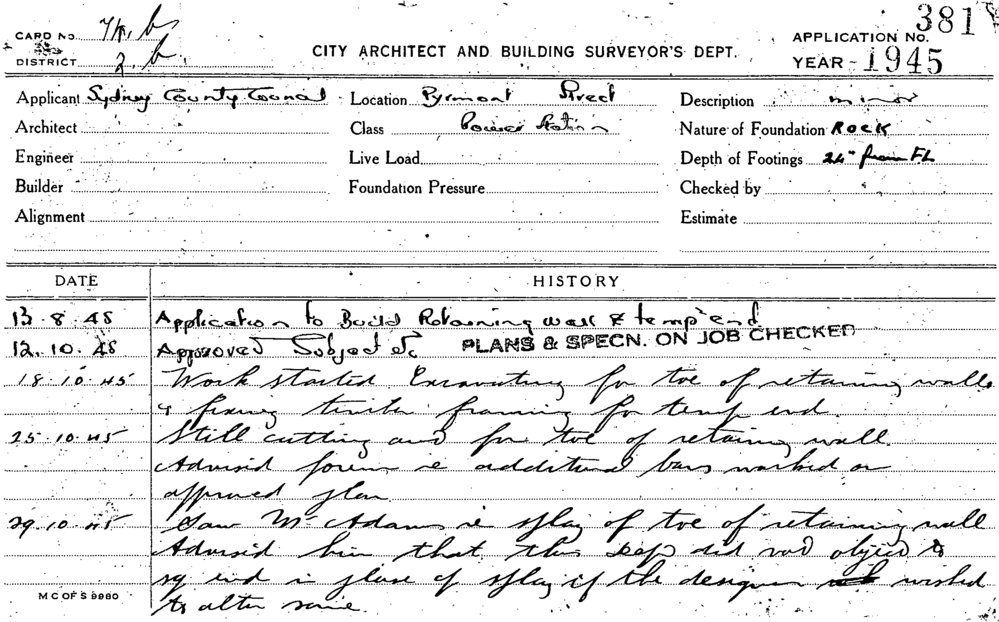 CARD No.
DISTRICT 2.b.
CITY ARCHITECT AND BUILDING SURVEYOR'S DEPT.
APPLICATION No. 381
YEAR - 1945
Applicant Sydney County Council
Location Pyrmont Street
Description minor
Architect
Class Power Station
Nature of Foundation ROCK
Engineer
Live Load
Depth of Footings 24" from FL
Builder
Foundation Pressure
Checked by
Alignment
Estimate
DATE HISTORY
13.8.45 Application to Build Retaining wall & temp end
12.10.45 Approved Subject to PLANS & SPECN. ON JOB CHECKED
18.10.45 Work started Excavating for toe of retaining wall
& fixing timber framing for temp end.
25.10.45 Still cutting out for toe of retaining wall.
Advised foreman re additional bars marked on
approved plan.
29.10.45 Saw Mc Adams re splay of toe of retaining wall
Advised him that this Dept did not object to
sq end in place of splay if the designer wished
to alter same.
M C OF S 9980